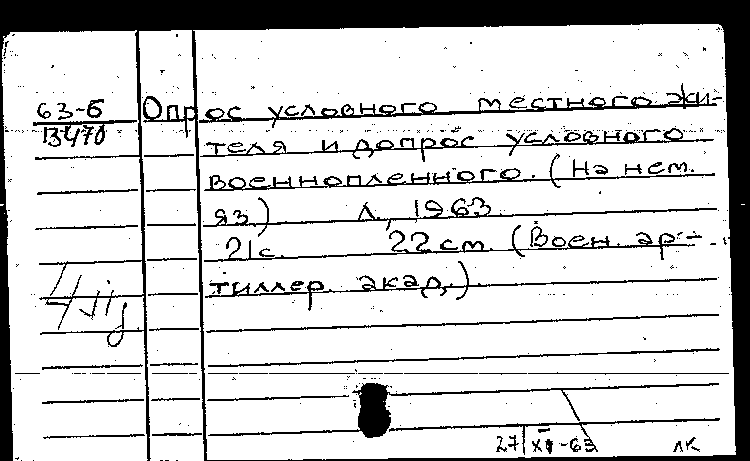 63-5 Опрос условного местного жи-
13470 теля и допрос условного
военнопленного. (На нем.
яз.) Л., 1963.
21с. 22 см. (Воен. ар-
тиллер. акад.)
27/XI-63 ЛК